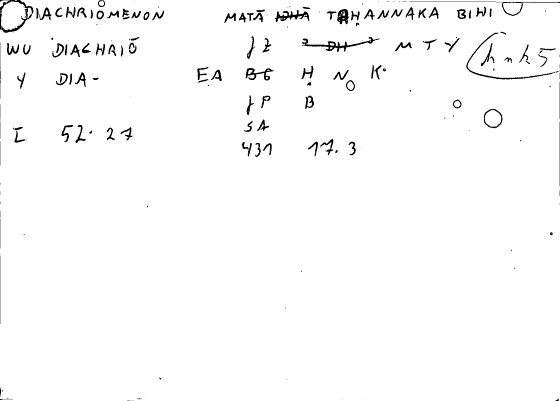 DIACHRIŌMENON MATĀ I̶D̶H̶Ā̶ TAḤANNAKA BIHI
WU DIACHRIŌ JZ ? DH ? M T Y ḥnk5
Y DIA- EA B̶G̶ Ḥ N K
JP B
SA
I 52.27 431 17.3